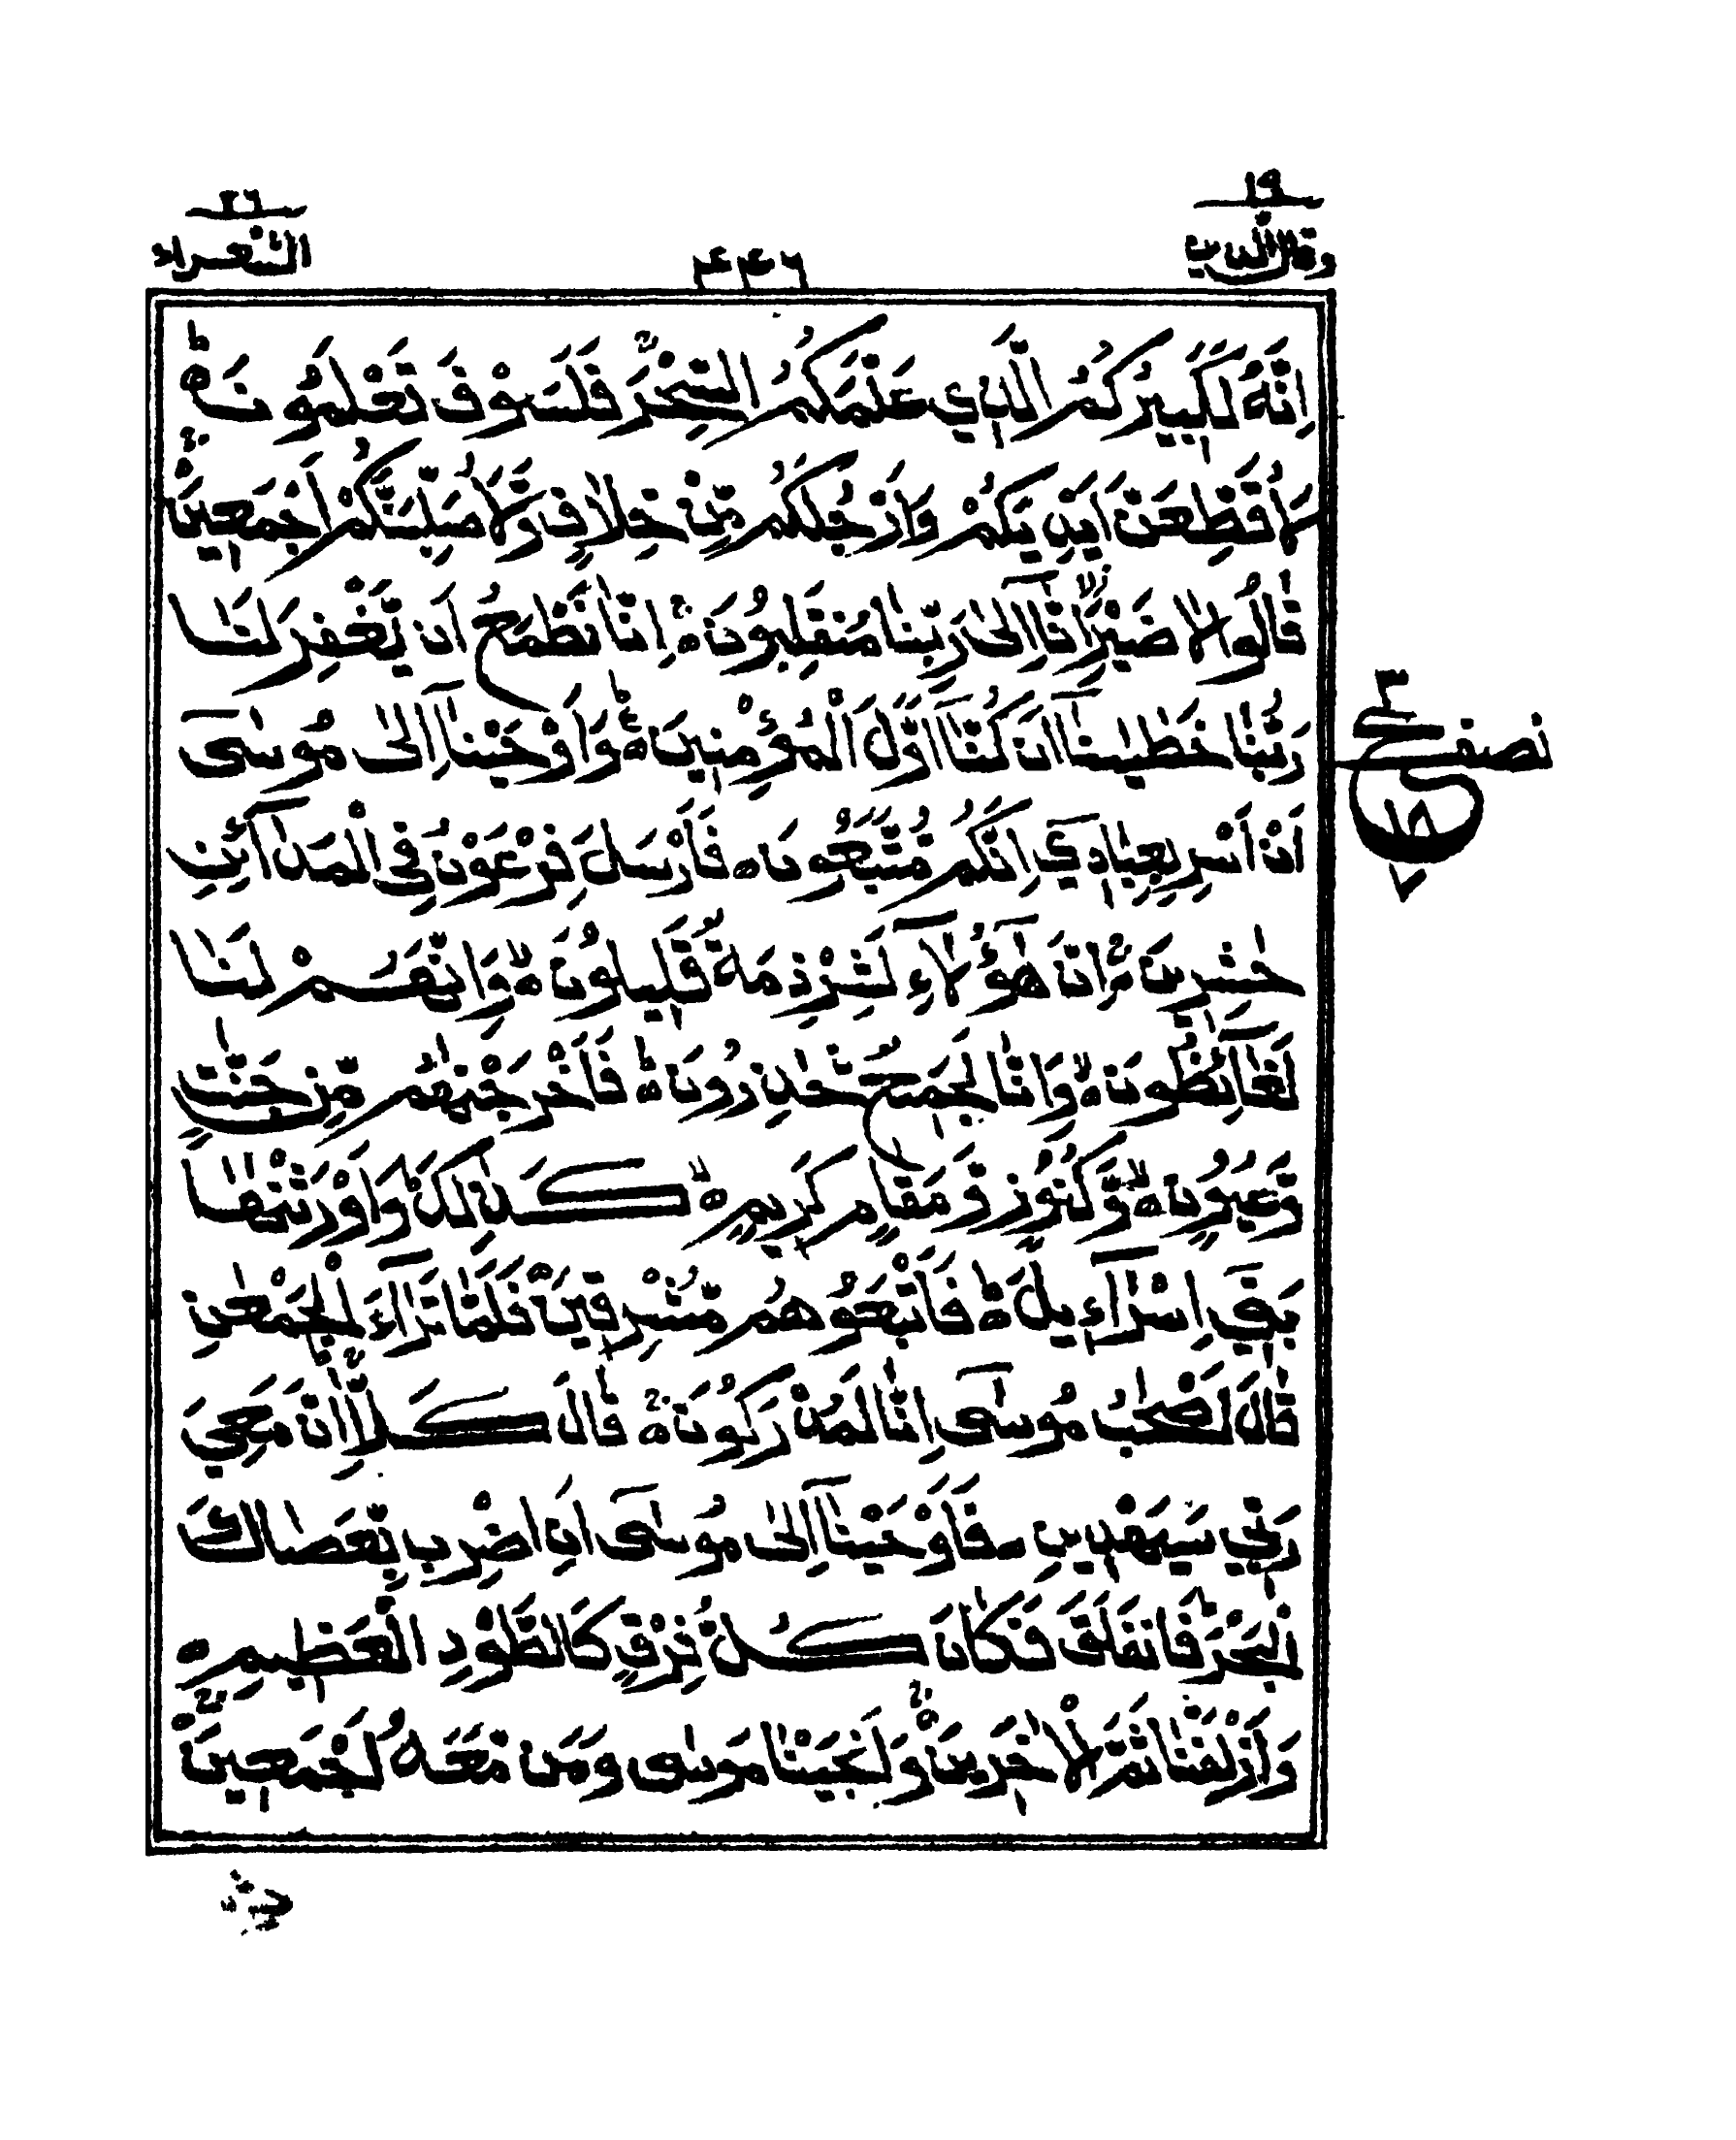 ١٩
وقال الذين
٤٤٦
٢٦
الشعراء
اِنَّهٗ لَكَبِيْرُكُمُ الَّذِيْ عَلَّمَكُمُ السِّحْرَ ۚ فَلَسَوْفَ تَعْلَمُوْنَ ؕ
لَاُقَطِّعَنَّ اَيْدِيَكُمْ وَاَرْجُلَكُمْ مِّنْ خِلَافٍ وَّلَاُصَلِّبَنَّكُمْ اَجْمَعِيْنَ ۚ
قَالُوْا لَا ضَيْرَ ؗ اِنَّاۤ اِلٰى رَبِّنَا مُنْقَلِبُوْنَ ۚ اِنَّا نَطْمَعُ اَنْ يَّغْفِرَ لَنَا
رَبُّنَا خَطٰيٰنَاۤ اَنْ كُنَّاۤ اَوَّلَ الْمُؤْمِنِيْنَ ؕ وَاَوْحَيْنَاۤ اِلٰى مُوْسٰۤى
اَنْ اَسْرِ بِعِبَادِيْۤ اِنَّكُمْ مُّتَّبَعُوْنَ ۝ فَاَرْسَلَ فِرْعَوْنُ فِي الْمَدَآئِنِ
حٰشِرِيْنَ ۚ اِنَّ هٰۤؤُلَآءِ لَشِرْذِمَةٌ قَلِيْلُوْنَ ۙ وَاِنَّهُمْ لَنَا
لَغَآئِظُوْنَ ۙ وَاِنَّا لَجَمِيْعٌ حٰذِرُوْنَ ؕ فَاَخْرَجْنٰهُمْ مِّنْ جَنّٰتٍ
وَّعُيُوْنٍ ۙ وَّكُنُوْزٍ وَّمَقَامٍ كَرِيْمٍ ۙ كَذٰلِكَ ؕ وَاَوْرَثْنٰهَا
بَنِيْۤ اِسْرَآءِيْلَ ؕ فَاَتْبَعُوْهُمْ مُّشْرِقِيْنَ ۝ فَلَمَّا تَرَآءَ الْجَمْعٰنِ
قَالَ اَصْحٰبُ مُوْسٰۤى اِنَّا لَمُدْرَكُوْنَ ۚ قَالَ كَلَّا ۚ اِنَّ مَعِيَ
رَبِّيْ سَيَهْدِيْنِ ۝ فَاَوْحَيْنَاۤ اِلٰى مُوْسٰۤى اَنِ اضْرِبْ بِّعَصَاكَ
الْبَحْرَ ؕ فَانْفَلَقَ فَكَانَ كُلُّ فِرْقٍ كَالطَّوْدِ الْعَظِيْمِ ۝
وَاَزْلَفْنَا ثَمَّ الْاٰخَرِيْنَ ۚ وَاَنْجَيْنَا مُوْسٰى وَمَنْ مَّعَهٗۤ اَجْمَعِيْنَ ۚ
نصف
٣
ع
١٨
٧